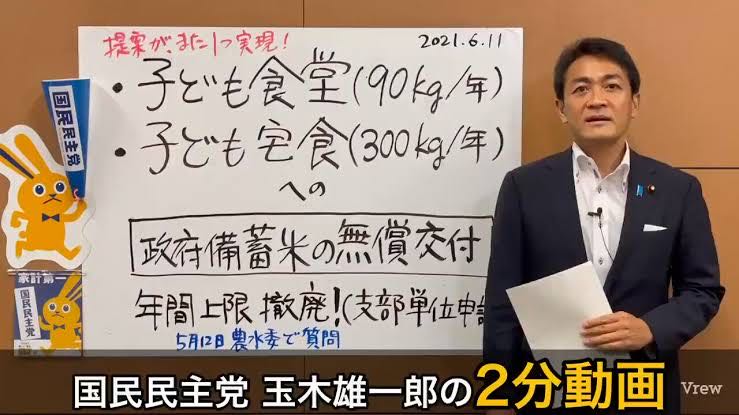 提案が、また1つ実現！
2021.6.11
・子ども食堂(90kg/年)
・子ども宅食(300kg/年)
への
政府備蓄米の無償交付
年間上限撤廃！(支部単位申請
5月12日農水委で質問
国民民主党
家計第一
国民民主党
国民民主党 玉木雄一郎の2分動画
Vrew